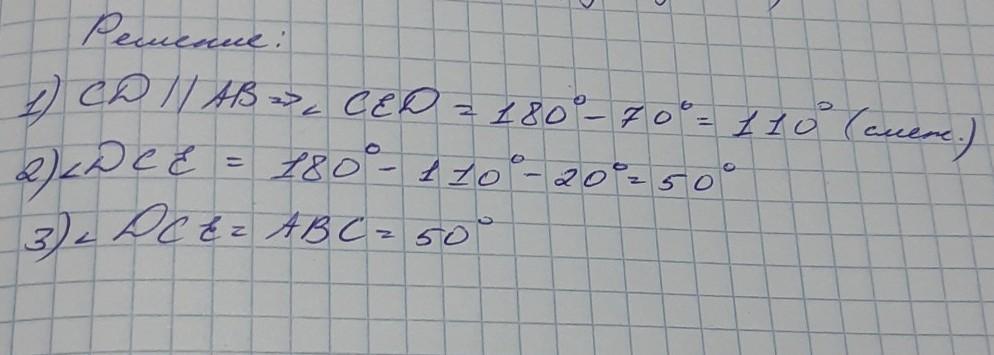 Решение:
1) CD || AB => ∠ CED = 180° - 70° = 110° (смеж.)
2) ∠DCE = 180° - 110° - 20° = 50°
3) ∠ DCE = ABC = 50°